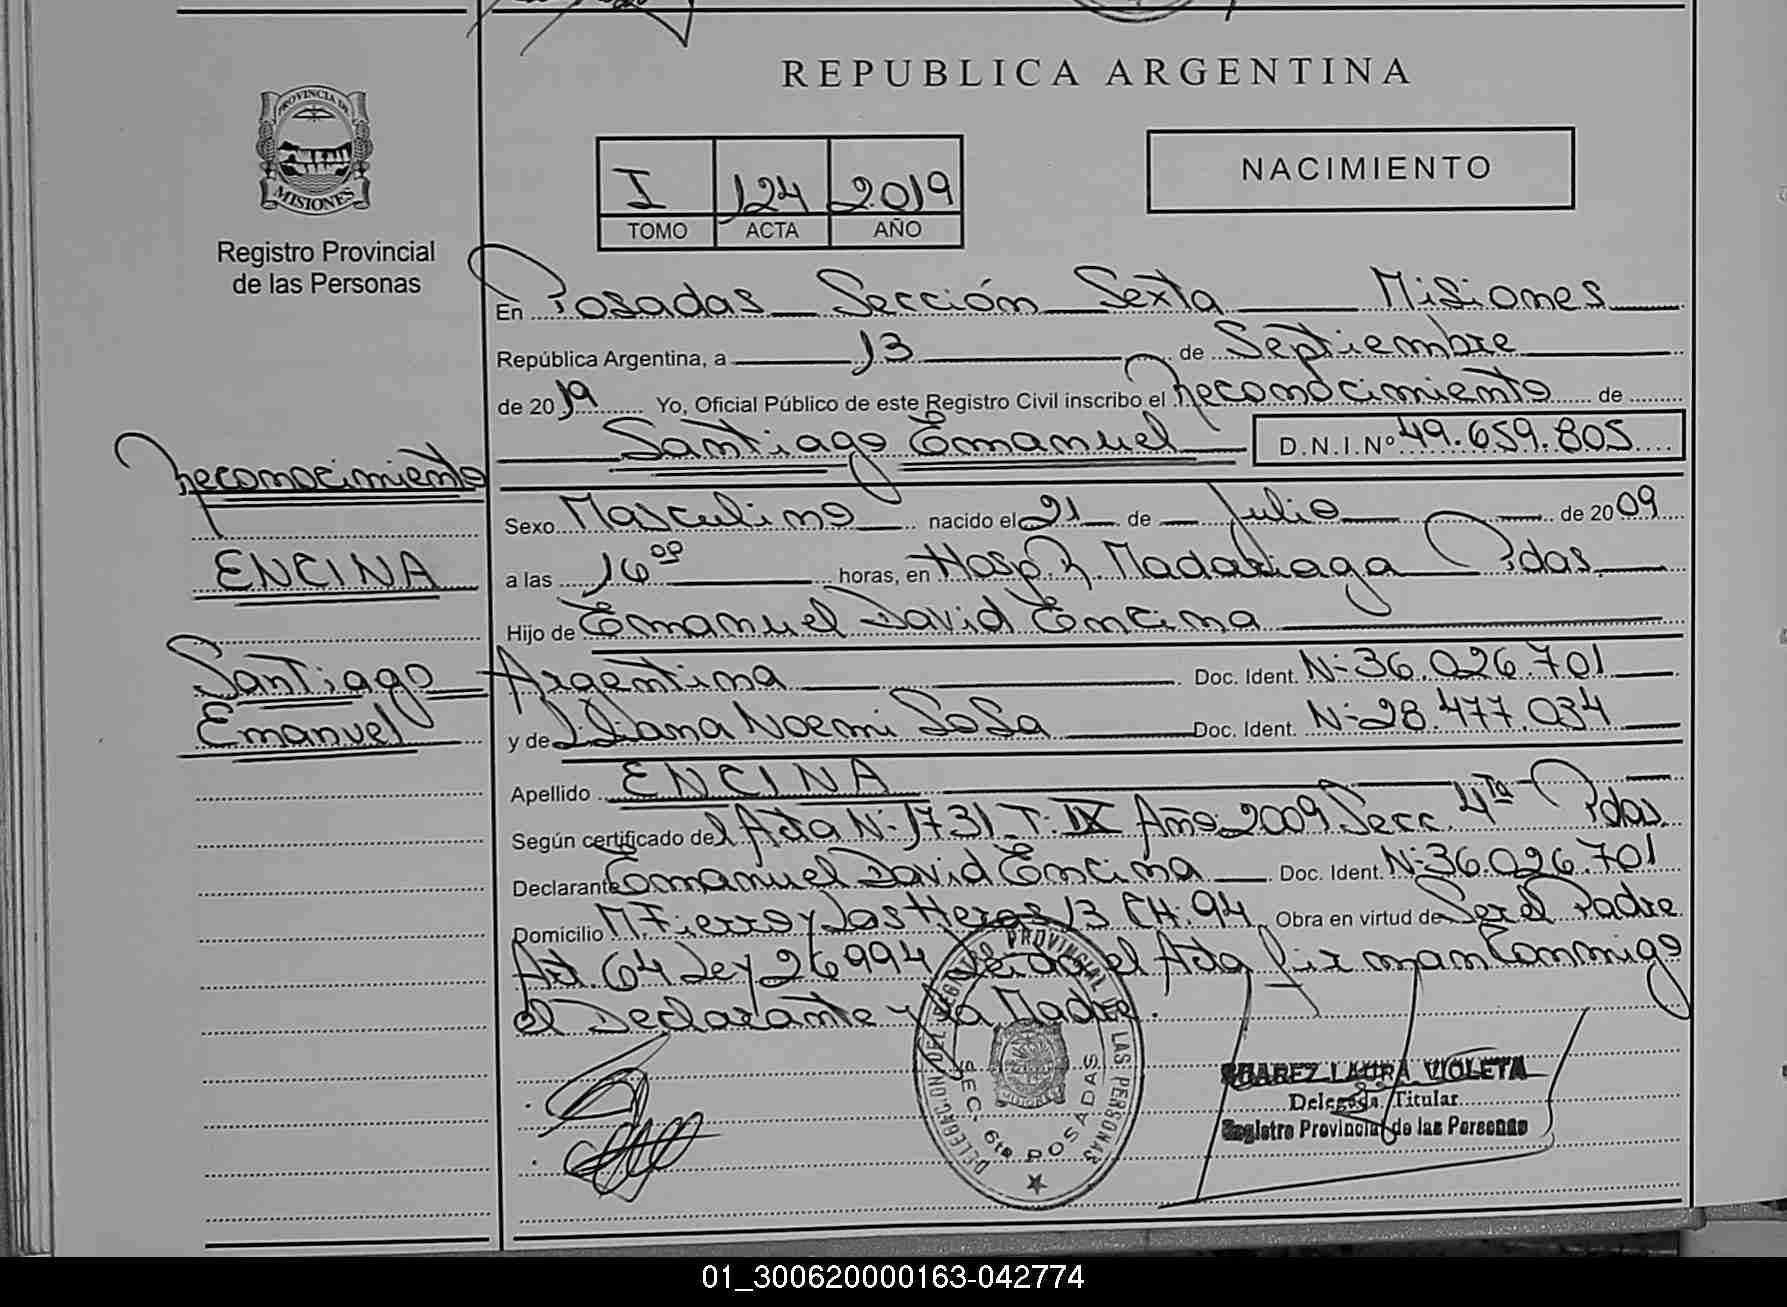 REPUBLICA ARGENTINA
PROVINCIA DE
MISIONES
Registro Provincial
de las Personas
I 124 2019
TOMO ACTA AÑO
NACIMIENTO
En Posadas Sección Sexta Misiones
República Argentina, a 13 de Septiembre
de 2019 Yo, Oficial Público de este Registro Civil inscribo el Reconocimiento de
Santiago Emanuel D.N.I.Nº 49.659.805
Reconocimiento
ENCINA
Santiago
Emanuel
Sexo Masculino nacido el 21 de Julio de 2009
a las 16 00 horas, en Hosp. R. Madariaga Pdas.
Hijo de Emanuel David Encina
Argentina Doc. Ident. Nº 36.026.701
y de Liliana Noemi Sosa Doc. Ident. Nº 28.477.034
Apellido ENCINA
Según certificado del Acta Nº 1731 T. IX Año 2009 Secc. 4ta Pdas
Declarante Emanuel David Encina Doc. Ident. Nº 36.026.701
Domicilio M. Fierro y Las Heras 13 CH. 94 Obra en virtud de Ser el Padre
Art. 64 Ley 26994 Leida el Acta firman Conmigo
el Declarante y la Madre.
DELEGACION DEL REGISTRO PROVINCIAL DE LAS PERSONAS
SEC. 6ta POSADAS
SUAREZ LAURA VIOLETA
Delegada Titular
Registro Provincial de las Personas
01_300620000163-042774